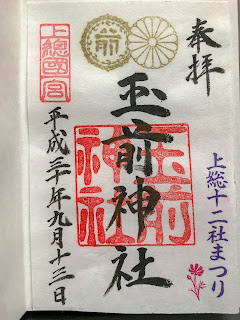 奉拝
上総十二社まつり
玉前神社
玉前神社
前
上總國一宮
平成三十年九月十三日